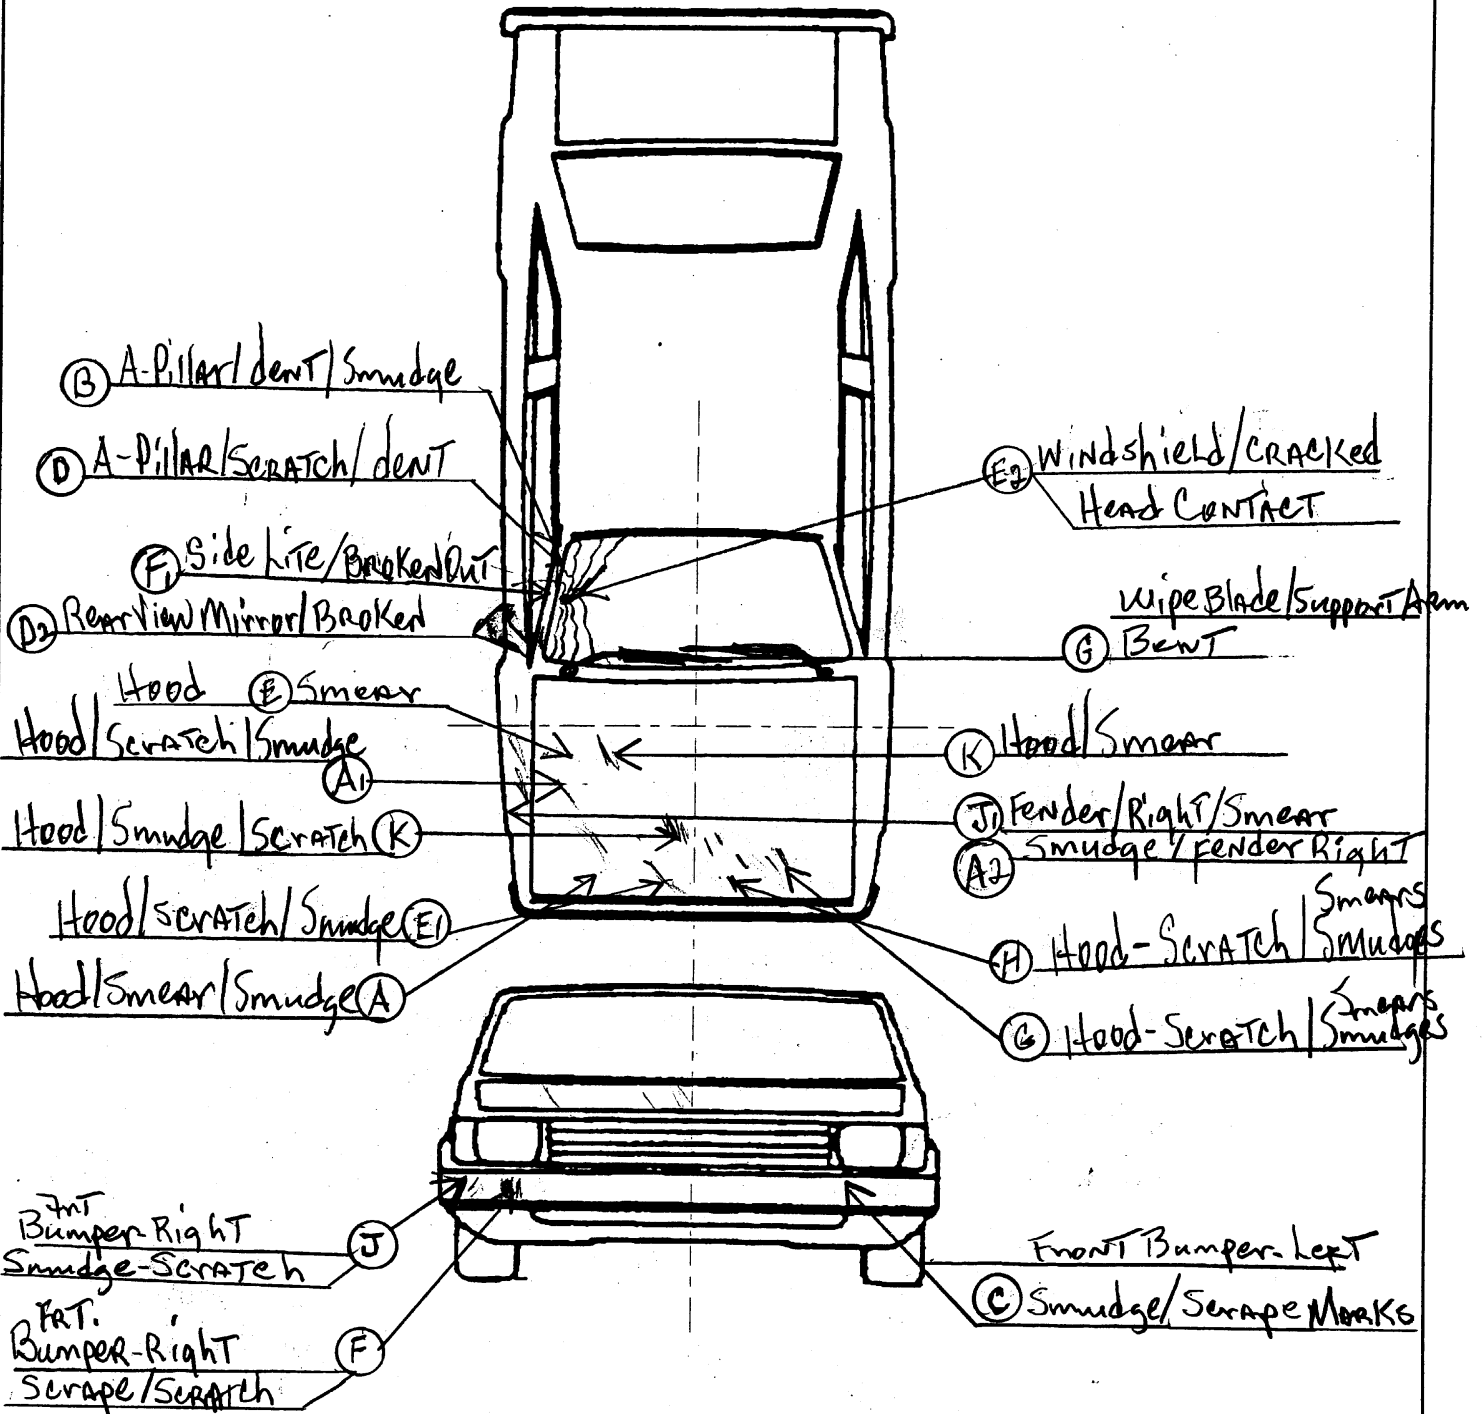 B A-Pillar/dent/Smudge
D A-Pillar/Scratch/dent
F1 Side Lite/Broken Out
D2 Rear View Mirror/Broken
Hood E Smear
Hood/Scratch/Smudge
A1
Hood/Smudge/Scratch K
Hood/Scratch/Smudge E1
Hood/Smear/Smudge A
E2 Windshield/Cracked
Head Contact
Wipe Blade/Support Arm
G Bent
K Hood/Smear
J1 Fender/Right/Smear
A2 Smudge/Fender Right
Smears
H Hood-Scratch/Smudges
Smears
G Hood-Scratch/Smudges
Frt
Bumper-Right J
Smudge-Scratch
Frt.
Bumper-Right F
Scrape/Scratch
Front Bumper-Left
C Smudge/Scrape Marks